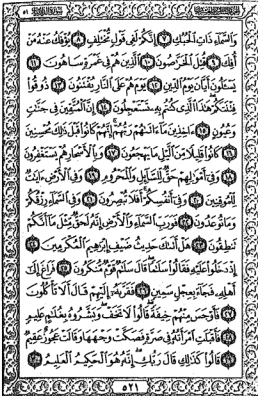 وَالسَّمَآءِ ذَاتِ الْحُبُكِ ٧ إِنَّكُمْ لَفِي قَوْلٍ مُّخْتَلِفٍ ٨ يُؤْفَكُ عَنْهُ مَنْ
أُفِكَ ٩ قُتِلَ الْخَرَّٰصُونَ ١٠ الَّذِينَ هُمْ فِي غَمْرَةٍ سَاهُونَ ١١
يَسْـَٔلُونَ أَيَّانَ يَوْمُ الدِّينِ ١٢ يَوْمَ هُمْ عَلَى النَّارِ يُفْتَنُونَ ١٣ ذُوقُوا
فِتْنَتَكُمْ هَٰذَا الَّذِي كُنتُم بِهِ تَسْتَعْجِلُونَ ١٤ إِنَّ الْمُتَّقِينَ فِي جَنَّٰتٍ
وَعُيُونٍ ١٥ ءَاخِذِينَ مَآ ءَاتَىٰهُمْ رَبُّهُمْ إِنَّهُمْ كَانُوا قَبْلَ ذَٰلِكَ مُحْسِنِينَ
١٦ كَانُوا قَلِيلًا مِّنَ الَّيْلِ مَا يَهْجَعُونَ ١٧ وَبِالْأَسْحَارِ هُمْ يَسْتَغْفِرُونَ
١٨ وَفِي أَمْوَٰلِهِمْ حَقٌّ لِّلسَّآئِلِ وَالْمَحْرُومِ ١٩ وَفِي الْأَرْضِ ءَايَٰتٌ
لِّلْمُوقِنِينَ ٢٠ وَفِي أَنفُسِكُمْ أَفَلَا تُبْصِرُونَ ٢١ وَفِي السَّمَآءِ رِزْقُكُمْ
وَمَا تُوعَدُونَ ٢٢ فَوَرَبِّ السَّمَآءِ وَالْأَرْضِ إِنَّهُ لَحَقٌّ مِّثْلَ مَآ أَنَّكُمْ
تَنطِقُونَ ٢٣ هَلْ أَتَىٰكَ حَدِيثُ ضَيْفِ إِبْرَٰهِيمَ الْمُكْرَمِينَ ٢٤
إِذْ دَخَلُوا عَلَيْهِ فَقَالُوا سَلَٰمًا قَالَ سَلَٰمٌ قَوْمٌ مُّنكَرُونَ ٢٥ فَرَاغَ إِلَىٰٓ
أَهْلِهِ فَجَآءَ بِعِجْلٍ سَمِينٍ ٢٦ فَقَرَّبَهُ إِلَيْهِمْ قَالَ أَلَا تَأْكُلُونَ
٢٧ فَأَوْجَسَ مِنْهُمْ خِيفَةً قَالُوا لَا تَخَفْ وَبَشَّرُوهُ بِغُلَٰمٍ عَلِيمٍ
٢٨ فَأَقْبَلَتِ امْرَأَتُهُ فِي صَرَّةٍ فَصَكَّتْ وَجْهَهَا وَقَالَتْ عَجُوزٌ عَقِيمٌ
٢٩ قَالُوا كَذَٰلِكِ قَالَ رَبُّكِ إِنَّهُ هُوَ الْحَكِيمُ الْعَلِيمُ ٣٠
٥٢١